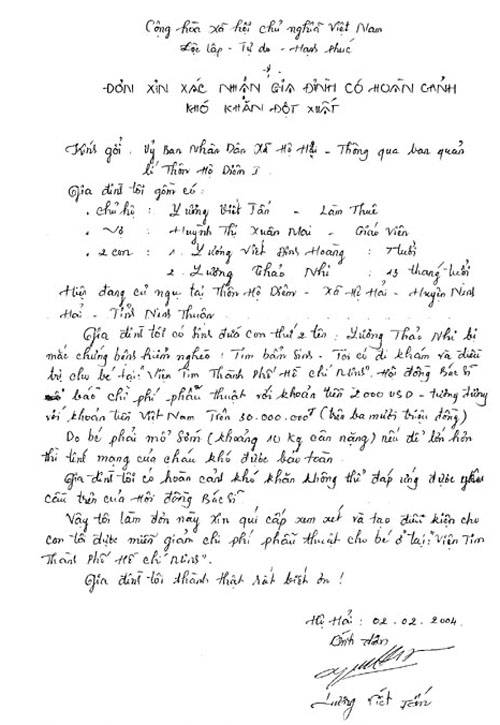 Cộng hòa xã hội chủ nghĩa Việt Nam
Độc lập - Tự do - Hạnh phúc
ĐƠN XIN XÁC NHẬN GIA ĐÌNH CÓ HOÀN CẢNH
KHÓ KHĂN ĐỘT XUẤT
Kính gởi : Uỷ Ban Nhân Dân Xã Hộ Hải - Thông qua ban quản
lí Thôn Hộ Diêm I.
Gia đình tôi gồm có :
. Chủ hộ : Lương Viết Tấn - Làm Thuê
. Vợ : Huỳnh Thị Xuân Mai - Giáo Viên
. 2 con : 1. Lương Viết Đình Hoàng : 7 tuổi
2. Lương Thảo Nhi : 13 tháng tuổi
Hiện đang cư ngụ tại Thôn Hộ Diêm - Xã Hộ Hải - Huyện Ninh
Hải - Tỉnh Ninh Thuận.
Gia đình tôi có sinh đứa con thứ 2 tên : Lương Thảo Nhi bị
mắc chứng bệnh hiểm nghèo : Tim bẩm sinh - Tôi có đi khám và điều
trị cho bé tại: Viện Tim Thành Phố Hồ Chí Minh". Hội đồng Bác Sĩ
báo chi phí phẫu thuật với khoản tiền 2.000 USD - tương đương
với khoản tiền Việt Nam Trên 30.000.000đ (trên ba mươi triệu đồng)
Do bé phải mổ sớm (khoảng 10 kg cân nặng) nếu để lớn hơn
thì tính mạng của cháu khó được bảo toàn.
Gia đình tôi có hoàn cảnh khó khăn không thể đáp ứng được yêu
cầu trên của Hội đồng Bác Sĩ
Vậy tôi làm đơn này xin quí cấp xem xét và tạo điều kiện cho
con tôi được miễn giảm chi phí phẫu thuật cho bé ở tại: "Viện Tim
Thành Phố Hồ Chí Minh".
Gia đình tôi thành thật rất biết ơn !
Hộ Hải : 02.02.2004.
Kính đơn
Lương Viết Tấn